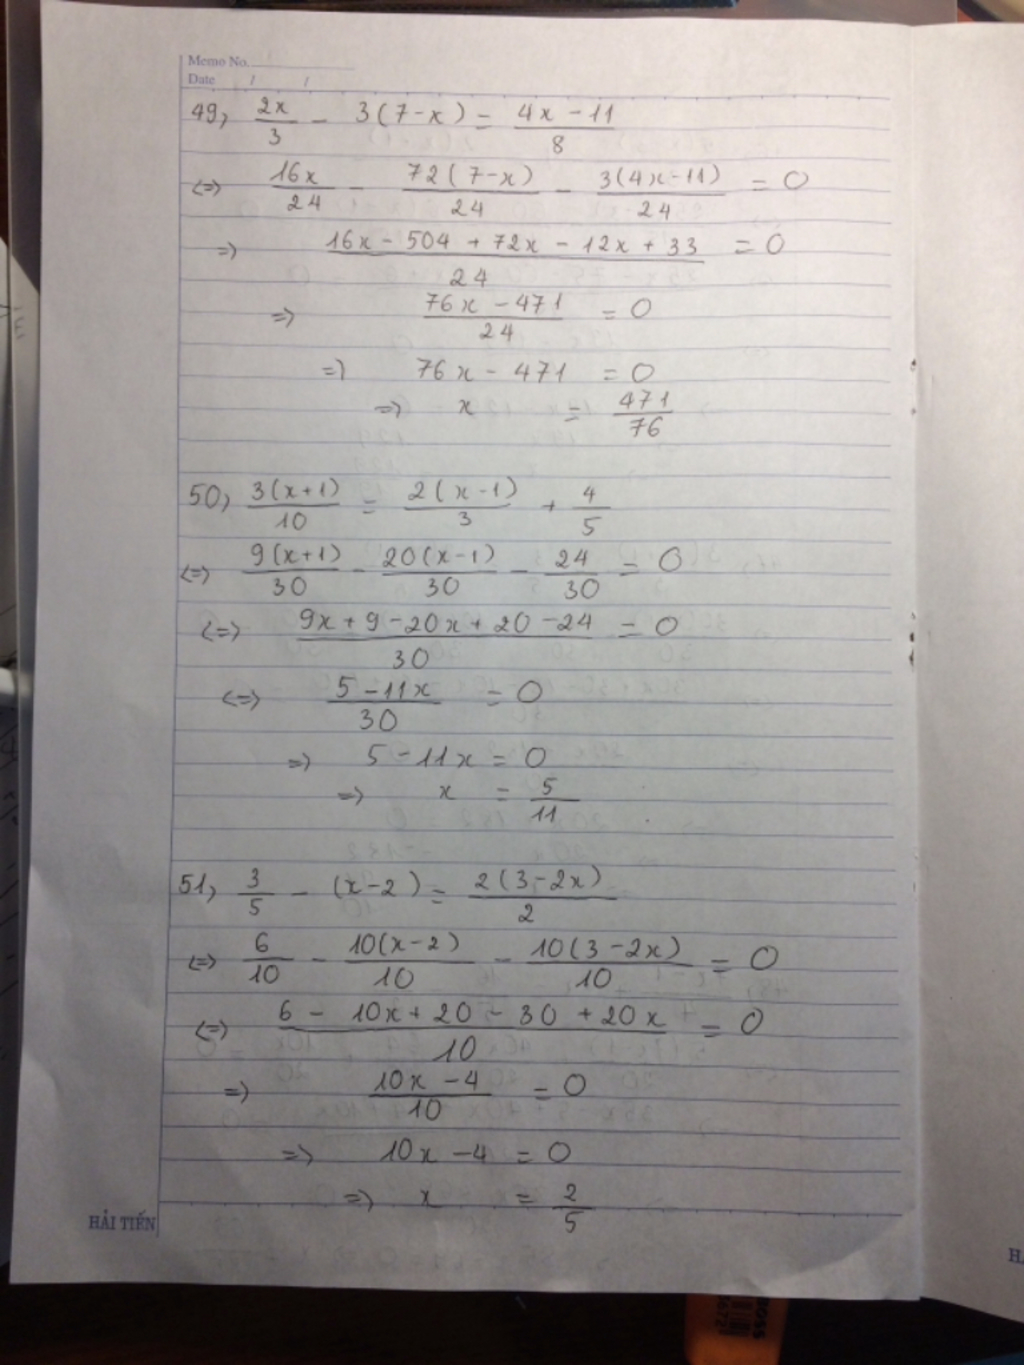 Memo No.
Date / /
49, 2x/3 - 3(7-x) = (4x-11)/8
<=> 16x/24 - 72(7-x)/24 - 3(4x-11)/24 = 0
=> (16x - 504 + 72x - 12x + 33)/24 = 0
=> (76x - 471)/24 = 0
=> 76x - 471 = 0
=> x = 471/76
50, 3(x+1)/10 = 2(x-1)/3 + 4/5
<=> 9(x+1)/30 - 20(x-1)/30 - 24/30 = 0
<=> (9x + 9 - 20x + 20 - 24)/30 = 0
<=> (5 - 11x)/30 = 0
=> 5 - 11x = 0
=> x = 5/11
51, 3/5 - (x-2) = 2(3-2x)/2
<=> 6/10 - 10(x-2)/10 - 10(3-2x)/10 = 0
<=> (6 - 10x + 20 - 30 + 20x)/10 = 0
=> (10x - 4)/10 = 0
=> 10x - 4 = 0
=> x = 2/5
HẢI TIẾN